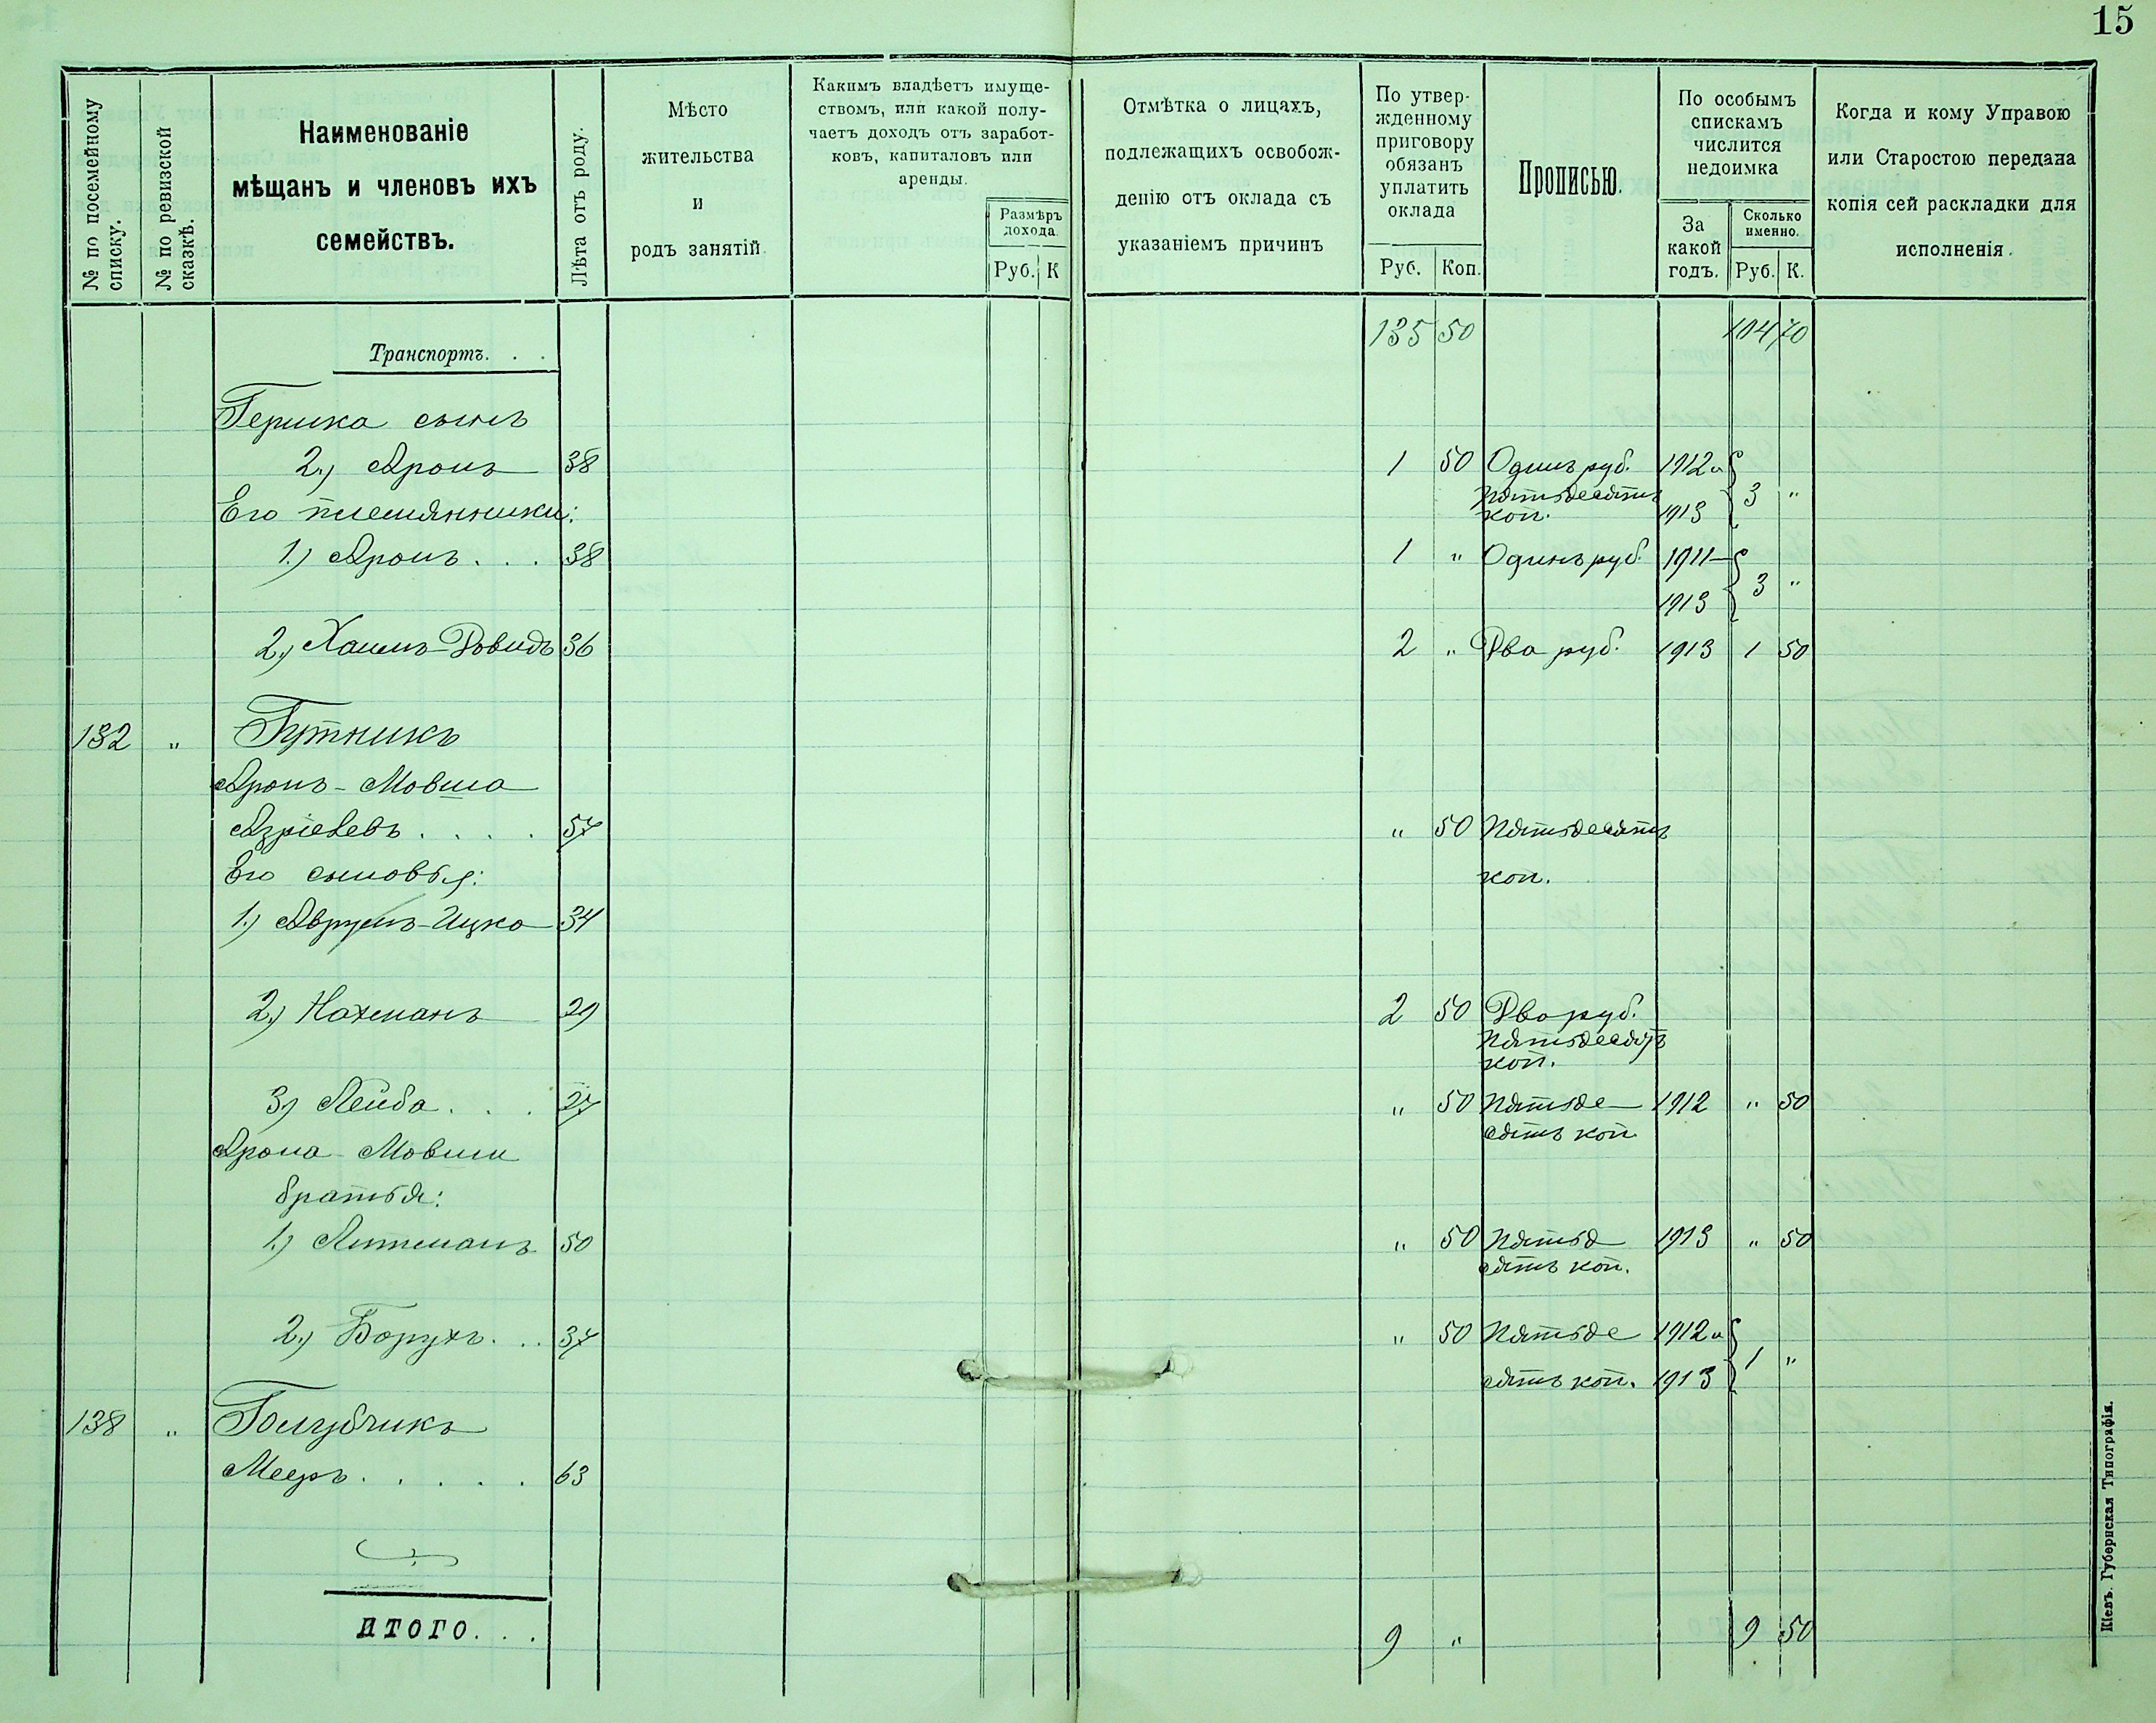 15
№ по посемейному списку.
№ по ревизской сказкѣ.
Наименованіе
мѣщанъ и членовъ ихъ
семействъ.
Лѣта отъ роду.
Мѣсто
жительства
и
родъ занятій.
Какимъ владѣетъ имуще-
ствомъ, или какой полу-
чаетъ доходъ отъ заработ-
ковъ, капиталовъ или
аренды.
Размѣръ
дохода.
Руб. К
Отмѣтка о лицахъ,
подлежащихъ освобож-
денію отъ оклада съ
указаніемъ причинъ
По утвер-
жденному
приговору
обязанъ
уплатить
оклада
Руб. Коп.
Прописью.
По особымъ
спискамъ
числится
недоимка
За
какой
годъ.
Сколько
именно.
Руб. К.
Когда и кому Управою
или Старостою передана
копія сей раскладки для
исполненія.
Транспортъ. . . 135 50 104 70
Гершка сынъ
2.) Аронъ 38 1 50 Одинъ руб. 1912 и
Его племянники: пятьдесятъ 3 "
коп. 1913
1.) Аронъ . . . 38 1 " Одинъ руб. 1911-
1913 3 "
2.) Хаимъ-Довидъ 36 2 " Два руб. 1913 1 50
132 " Гутникъ
Аронъ-Мовша
Азріелевъ . . . . 57 " 50 Пятьдесятъ
Его сыновья: коп.
1.) Аврумъ-Ицко 34
2.) Нахманъ 29 2 50 Два руб.
пятьдесятъ
коп.
3) Лейба . . . 27 " 50 Пятьде- 1912 " 50
сятъ коп.
Арона-Мовши
братья:
1.) Литманъ 50 " 50 Пятьд 1913 " 50
сятъ коп.
2.) Борухъ . . . 37 " 50 Пятьде 1912 и
сятъ коп. 1913 1 "
138 " Голубчикъ
Мееръ . . . . . 63
ИТОГО. . . 9 " 9 50
Кіевъ. Губернская Типографія.